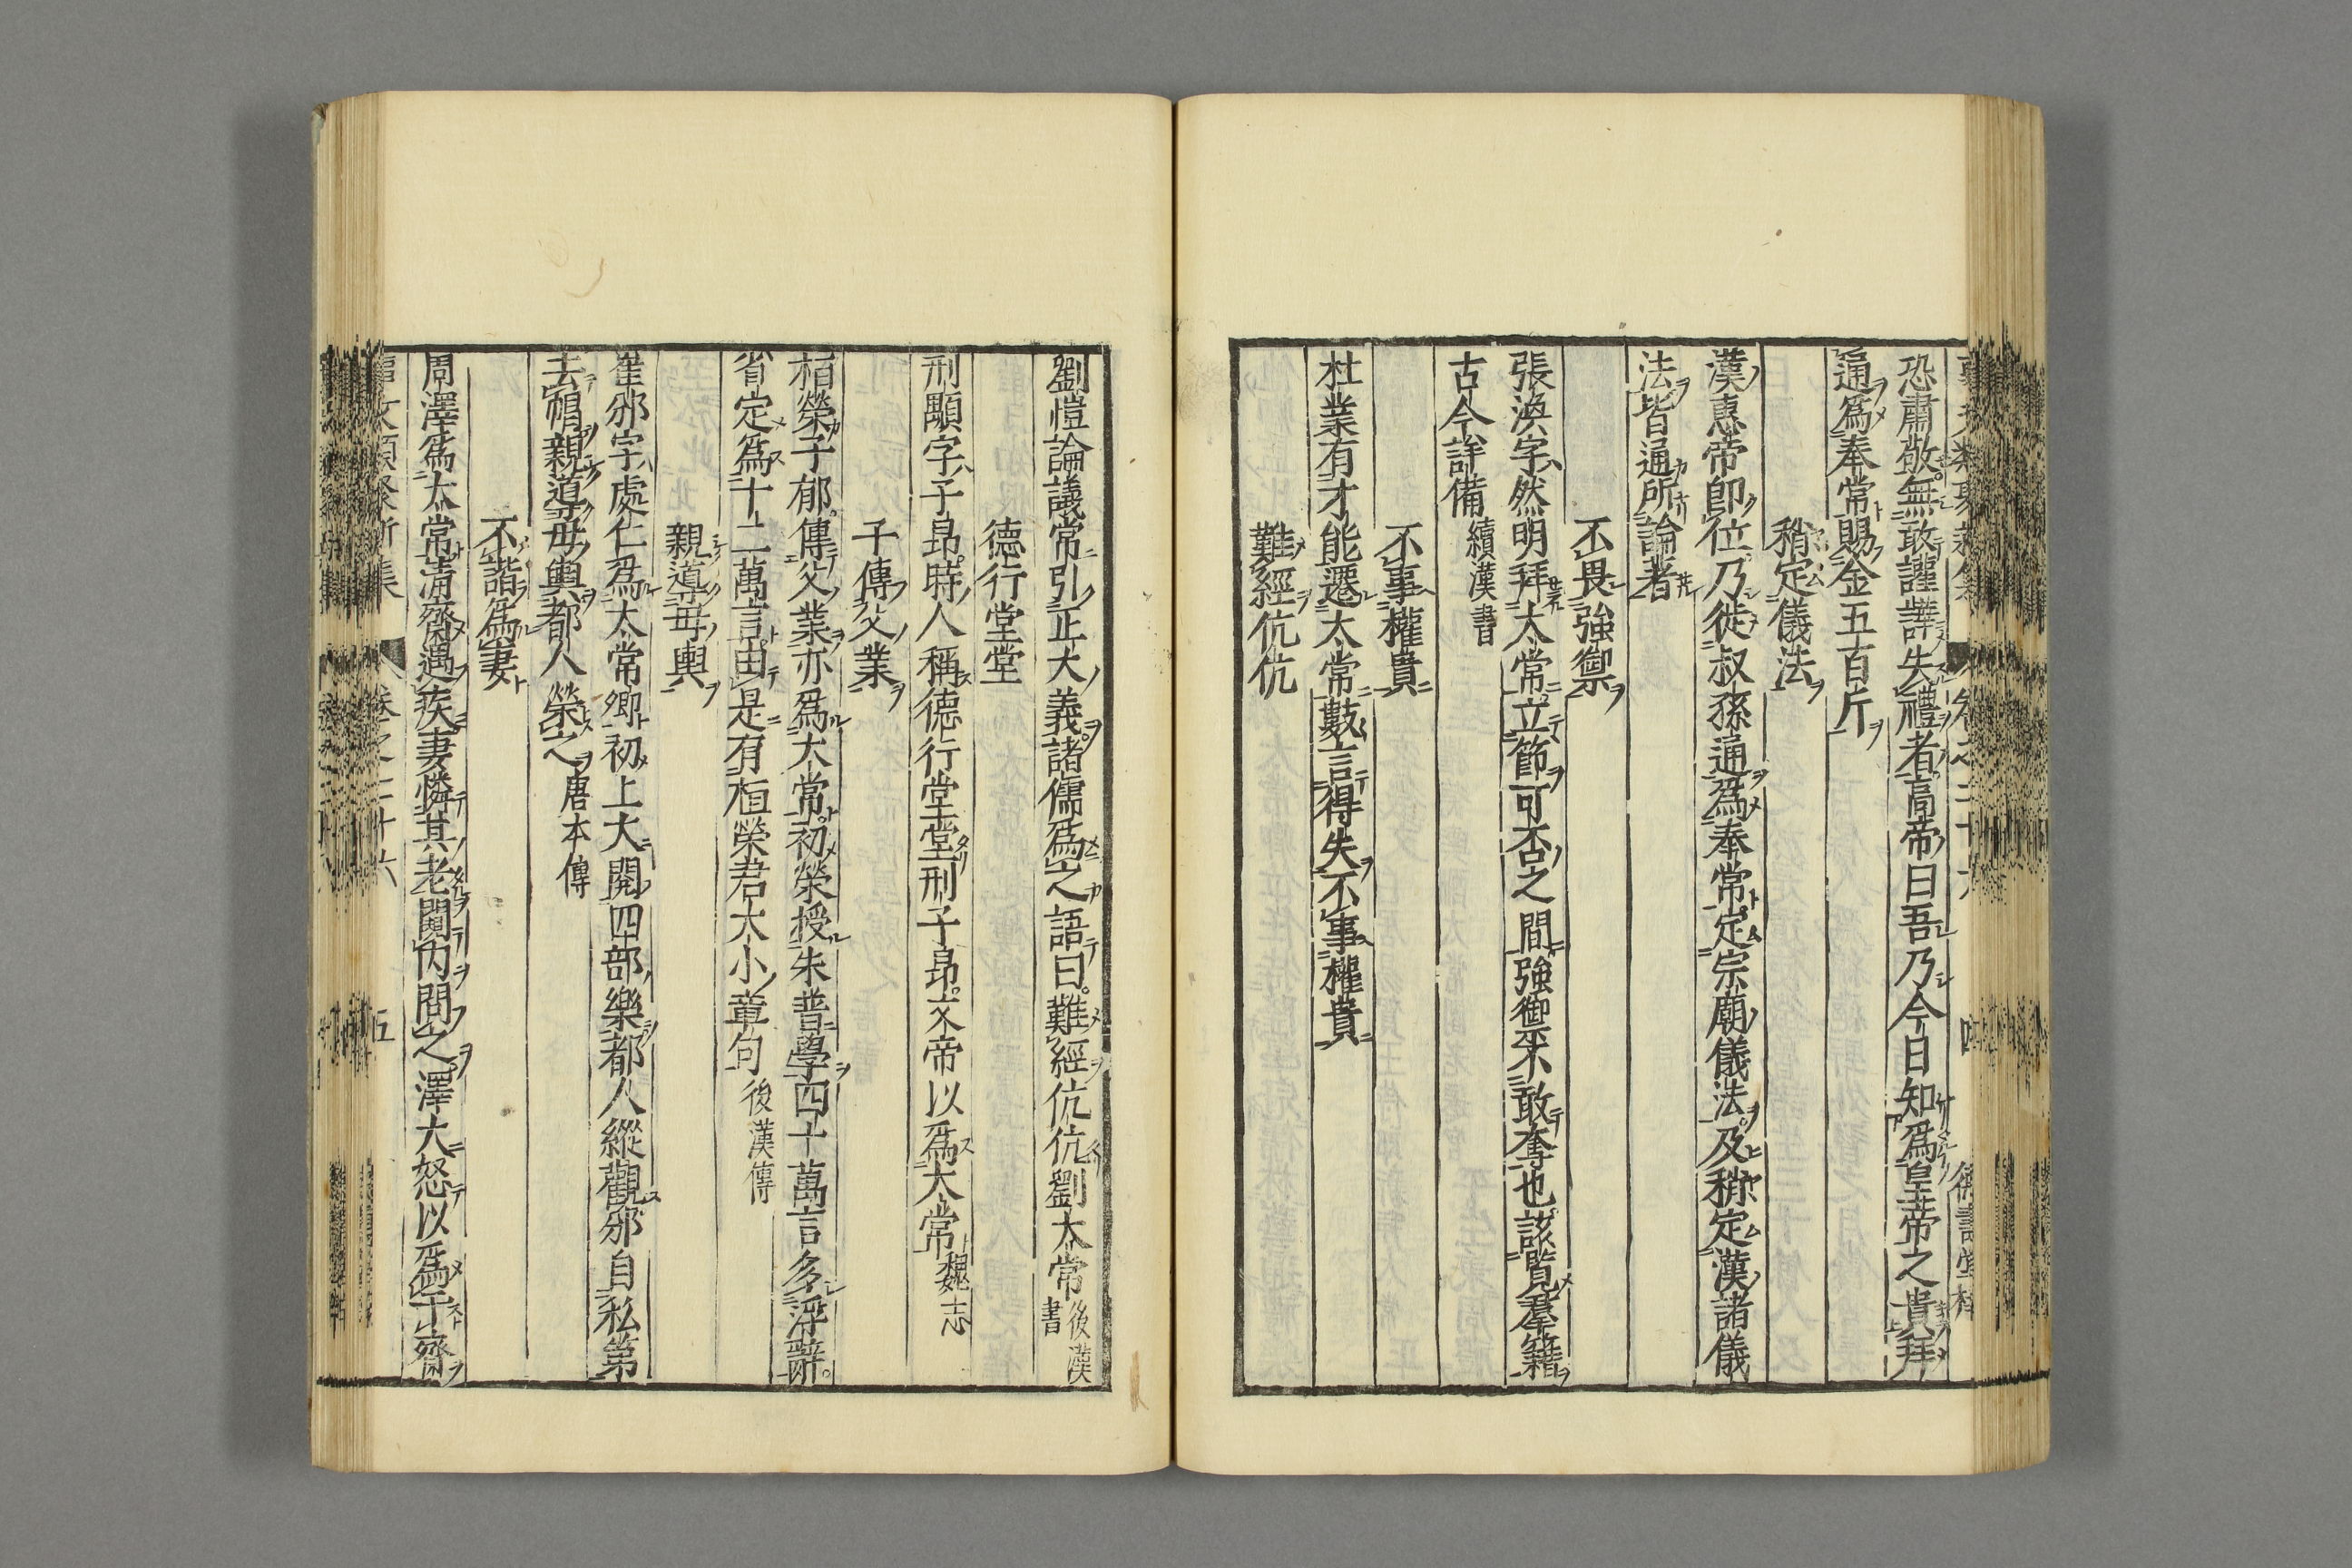 恐肅敬無敢讙譁失禮者高帝曰吾乃今日知爲皇帝之貴拜
通爲奉常賜金五百斤
稍定儀法
漢惠帝即位乃徙叔孫通爲奉常定宗廟儀法及稍定漢諸儀
法皆通所論者
不畏強禦
張渙字然明拜太常立節可否之間強御不敢奪也該覽羣籍
古今詳備續漢書
不事權貴
杜業有才能遷太常數言得失不事權貴
難經伉伉
劉愷論議常引正大義諸儒爲之語曰難經伉伉劉太常後漢書
德行堂堂
刑顒字子昂時人稱德行堂堂刑子昂文帝以爲太常魏志
子傳父業
栢榮子郁傳父業亦爲太常初榮授朱普學四十萬言多浮辭
省定爲十二萬言由是有桓榮君大小章句後漢傳
親導母輿
崔邠字處仁爲太常卿初上大閱四部樂都人縱觀邠自私第
去帽親導母輿都人榮之唐本傳
不諧爲妻
周澤爲太常清齋遇疾妻憐其老闚內問之澤大怒以爲干齋
五